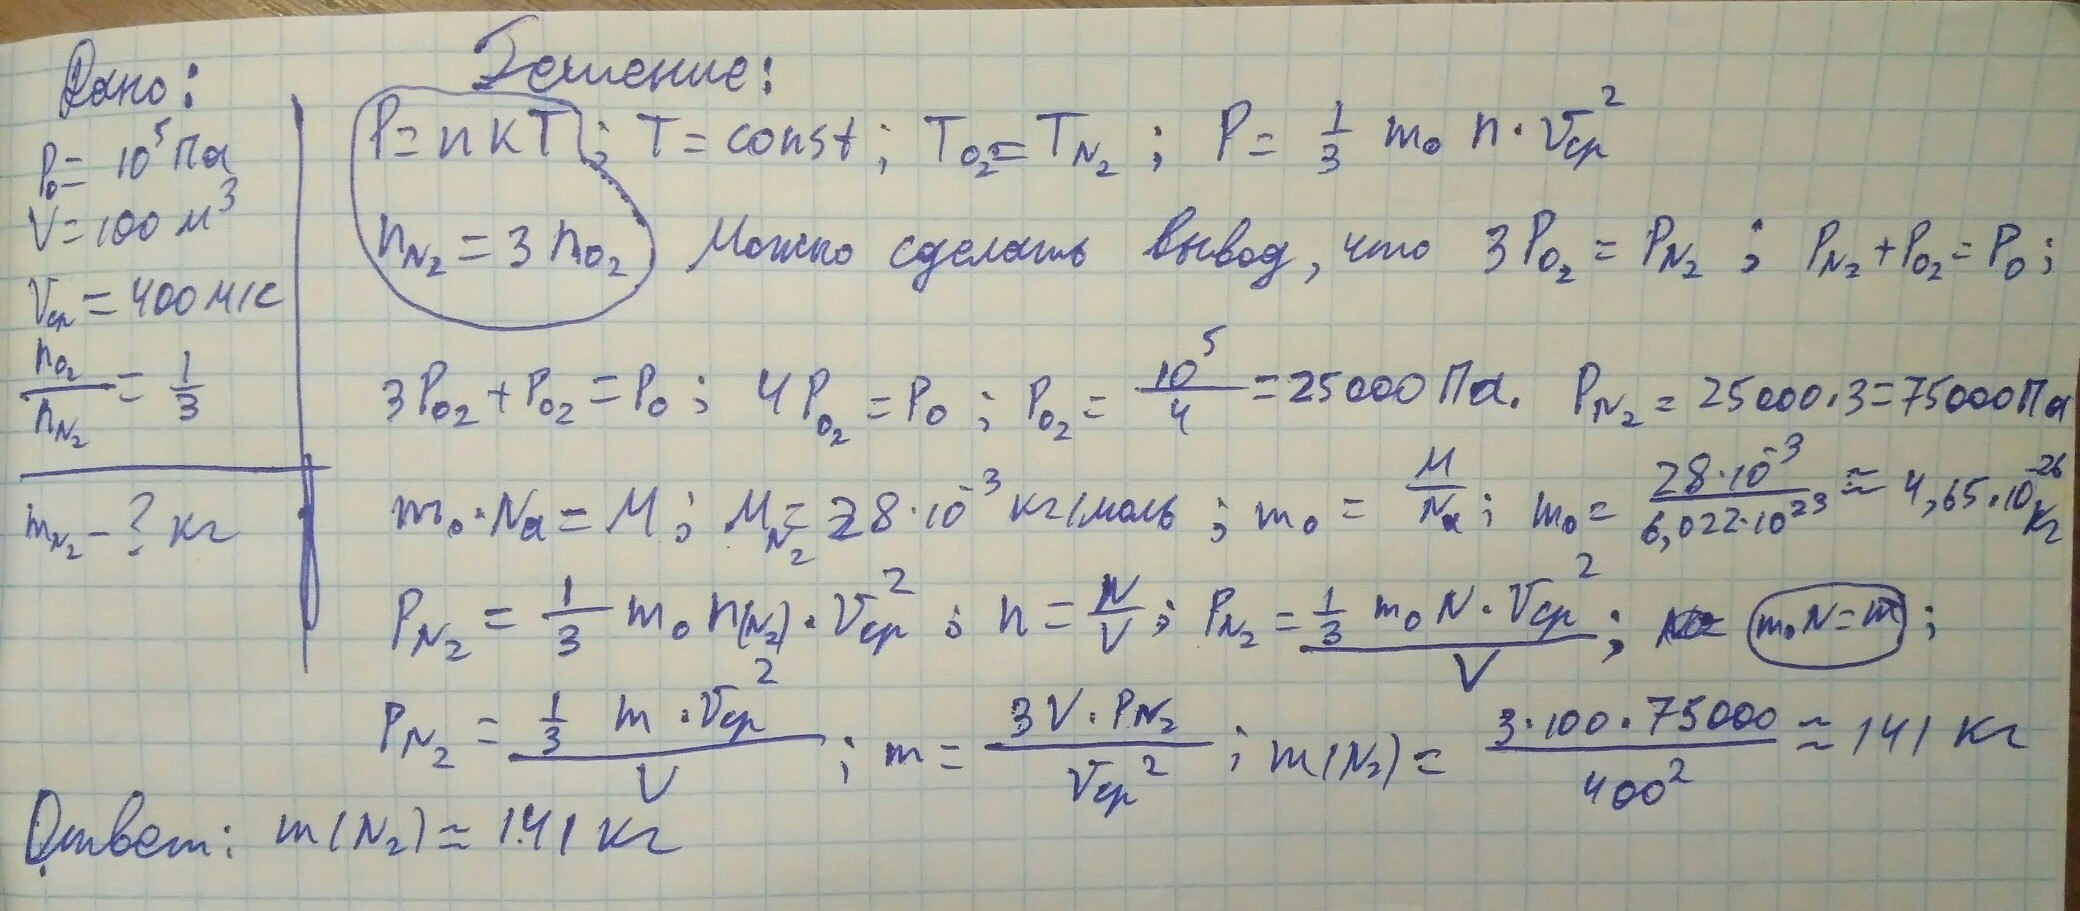 Дано:
P₀ = 10⁵ Па
V = 100 м³
Vср = 400 м/с
n_O₂ / n_N₂ = 1/3
m_N₂ - ? кг
Решение:
P = nкT; T = const; T_O₂ = T_N₂; P = 1/3 m₀ n · Vср²
n_N₂ = 3 n_O₂ Можно сделать вывод, что 3P_O₂ = P_N₂; P_N₂ + P_O₂ = P₀;
3P_O₂ + P_O₂ = P₀; 4P_O₂ = P₀; P_O₂ = 10⁵/4 = 25000 Па. P_N₂ = 25000·3 = 75000 Па
m₀·Nа = М; М_N₂ = 28·10⁻³ кг/моль; m₀ = М/Nа; m₀ = 28·10⁻³ / 6,022·10²³ ≈ 4,65·10⁻²⁶ кг
P_N₂ = 1/3 m₀ n(N₂)·Vср²; n = N/V; P_N₂ = 1/3 m₀ N·Vср² / V; m₀N = m;
P_N₂ = 1/3 m·Vср² / V; m = 3V·P_N₂ / Vср²; m(N₂) = 3·100·75000 / 400² ≈ 141 кг
Ответ: m(N₂) ≈ 141 кг